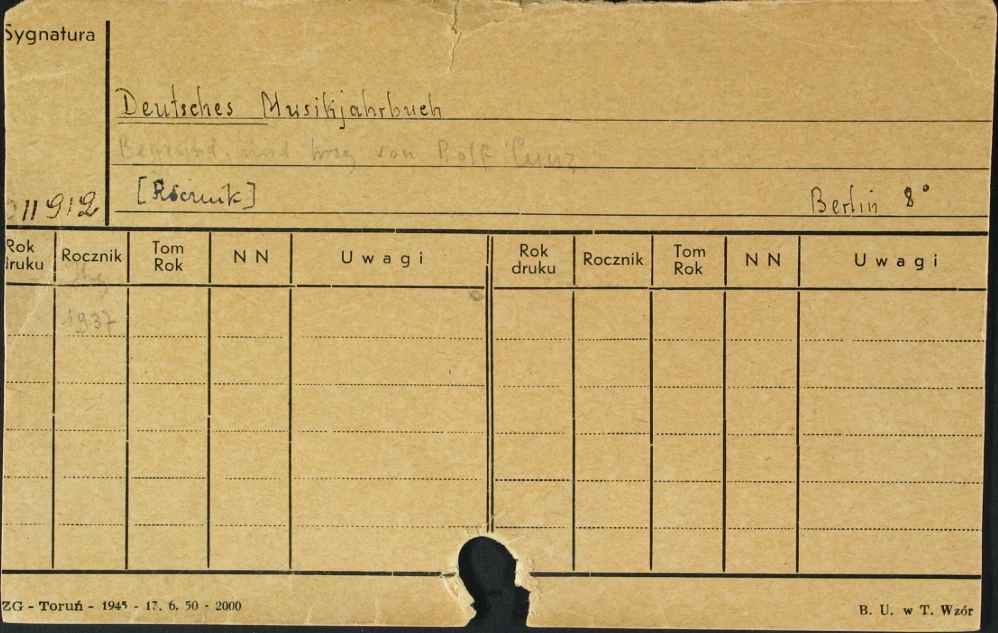 Sygnatura
Deutsches Musikjahrbuch
und hrsg von Rolf Cunz
[Rocznik]
Berlin 8°
11912
Rok druku Rocznik Tom Rok NN Uwagi Rok druku Rocznik Tom Rok NN Uwagi
1937
ZG - Toruń - 1945 - 17. 6. 50 - 2000
B. U. w T. Wzór